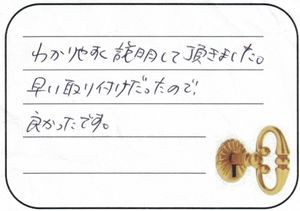 わかりやすく説明して頂きました。
早い取り付けだったので!
良かったです。